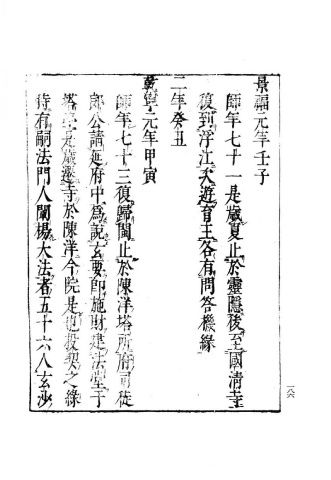 景福元年壬子
師年七十一是歲夏止於靈隱後至國清寺
復到浮江天遊育王各有問答機緣
二年癸丑
乾寧元年甲寅
師年七十三復歸閩止於陳洋塔所府司徒
郎公請延府中為說玄要即施財建法堂于
塔是歲遷寺於陳洋今院是也投契之緣
時有嗣法門人闡揚大法者五十六人玄沙
一八六